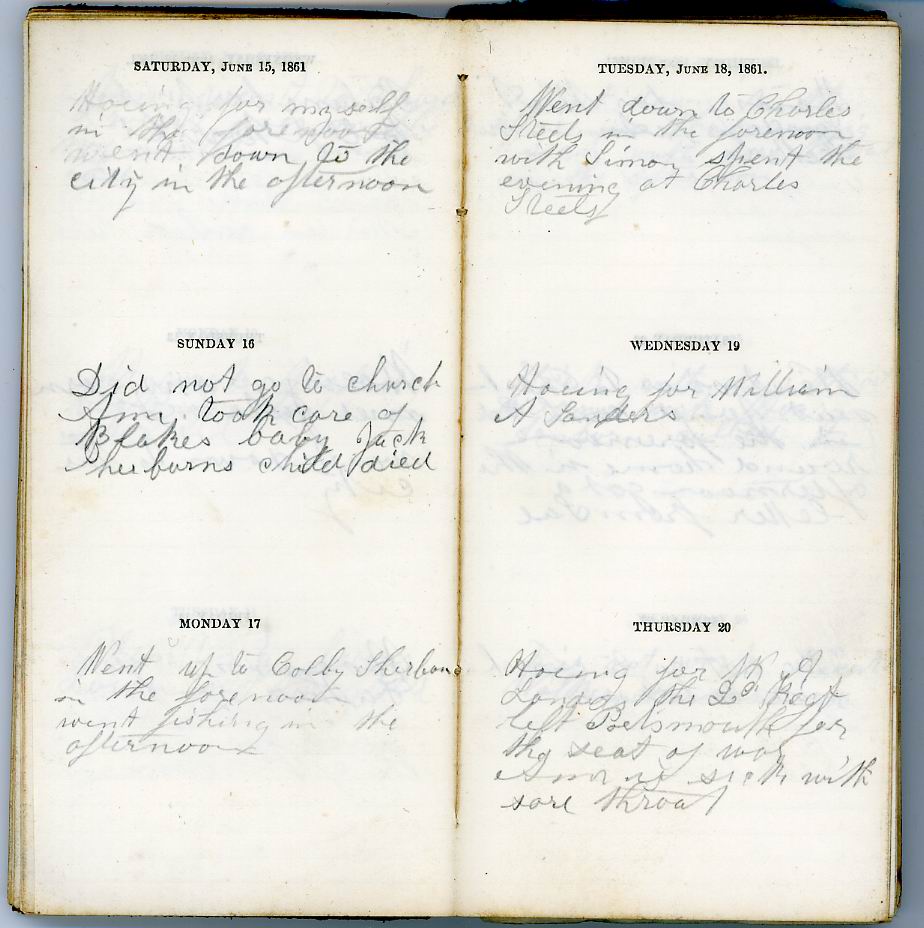 SATURDAY, JUNE 15, 1861
Hoeing for myself
in the forenoon
went down to the
city in the afternoon
SUNDAY 16
Did not go to church
Ann took care of
Blakes baby Jack
Sherburns child died
MONDAY 17
Went up to Colby Sherburns
in the forenoon
went fishing in the
afternoon
TUESDAY, JUNE 18, 1861.
Went down to Charles
Steels in the forenoon
with Simon spent the
evening at Charles
Steels
WEDNESDAY 19
Hoeing for William
A Sanders
THURSDAY 20
Hoeing for
the 2d Regt
left Portsmouth for
the seat of war
sick with
sore throat